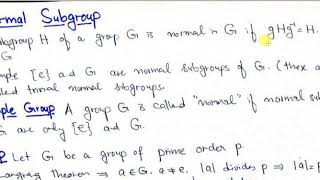 ormal Subgroup
ubgroup H of a grop G is normal in G if gHg⁻¹ = H.
G
mple [e] a.d G are normal subgroups of G. (thex a
lled trival normal subgroups.
ple Group. A group G is called "normal" if normal sub
G are only [e] a.d G.
Let G be a group of prime order p.
agrang theorem ⇒ a ∈ G, a ≠ e, |a| divides p ⇒ |a| = p